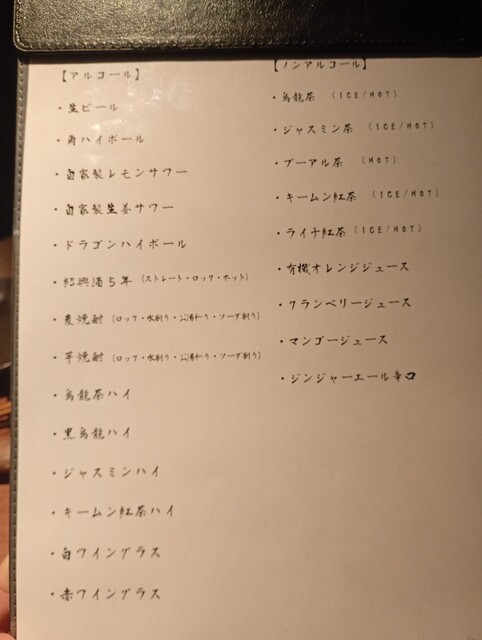 【アルコール】
・生ビール
・角ハイボール
・自家製レモンサワー
・自家製生姜サワー
・ドラゴンハイボール
・紹興酒5年 (ストレート・ロック・ホット)
・麦焼酎 (ロック・水割り・お湯わり・ソーダ割り)
・芋焼酎 (ロック・水割り・お湯わり・ソーダ割り)
・烏龍茶ハイ
・黒烏龍ハイ
・ジャスミンハイ
・キームン紅茶ハイ
・白ワイングラス
・赤ワイングラス
【ノンアルコール】
・烏龍茶 (ICE/HOT)
・ジャスミン茶 (ICE/HOT)
・プーアル茶 (HOT)
・キームン紅茶 (ICE/HOT)
・ライチ紅茶 (ICE/HOT)
・有機オレンジジュース
・クランベリージュース
・マンゴージュース
・ジンジャーエール辛口